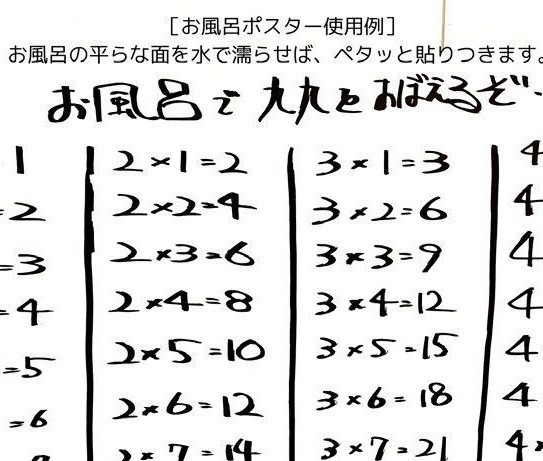 ［お風呂ポスター使用例］
お風呂の平らな面を水で濡らせば、ペタッと貼りつきます。
お風呂で 九九をおぼえるぞ
1 2×1=2 3×1=3 4
=2 2×2=4 3×2=6 4
=3 2×3=6 3×3=9 4
=4 2×4=8 3×4=12 4
=5 2×5=10 3×5=15 4
=6 2×6=12 3×6=18 4
2×7=14 3×7=21 4×